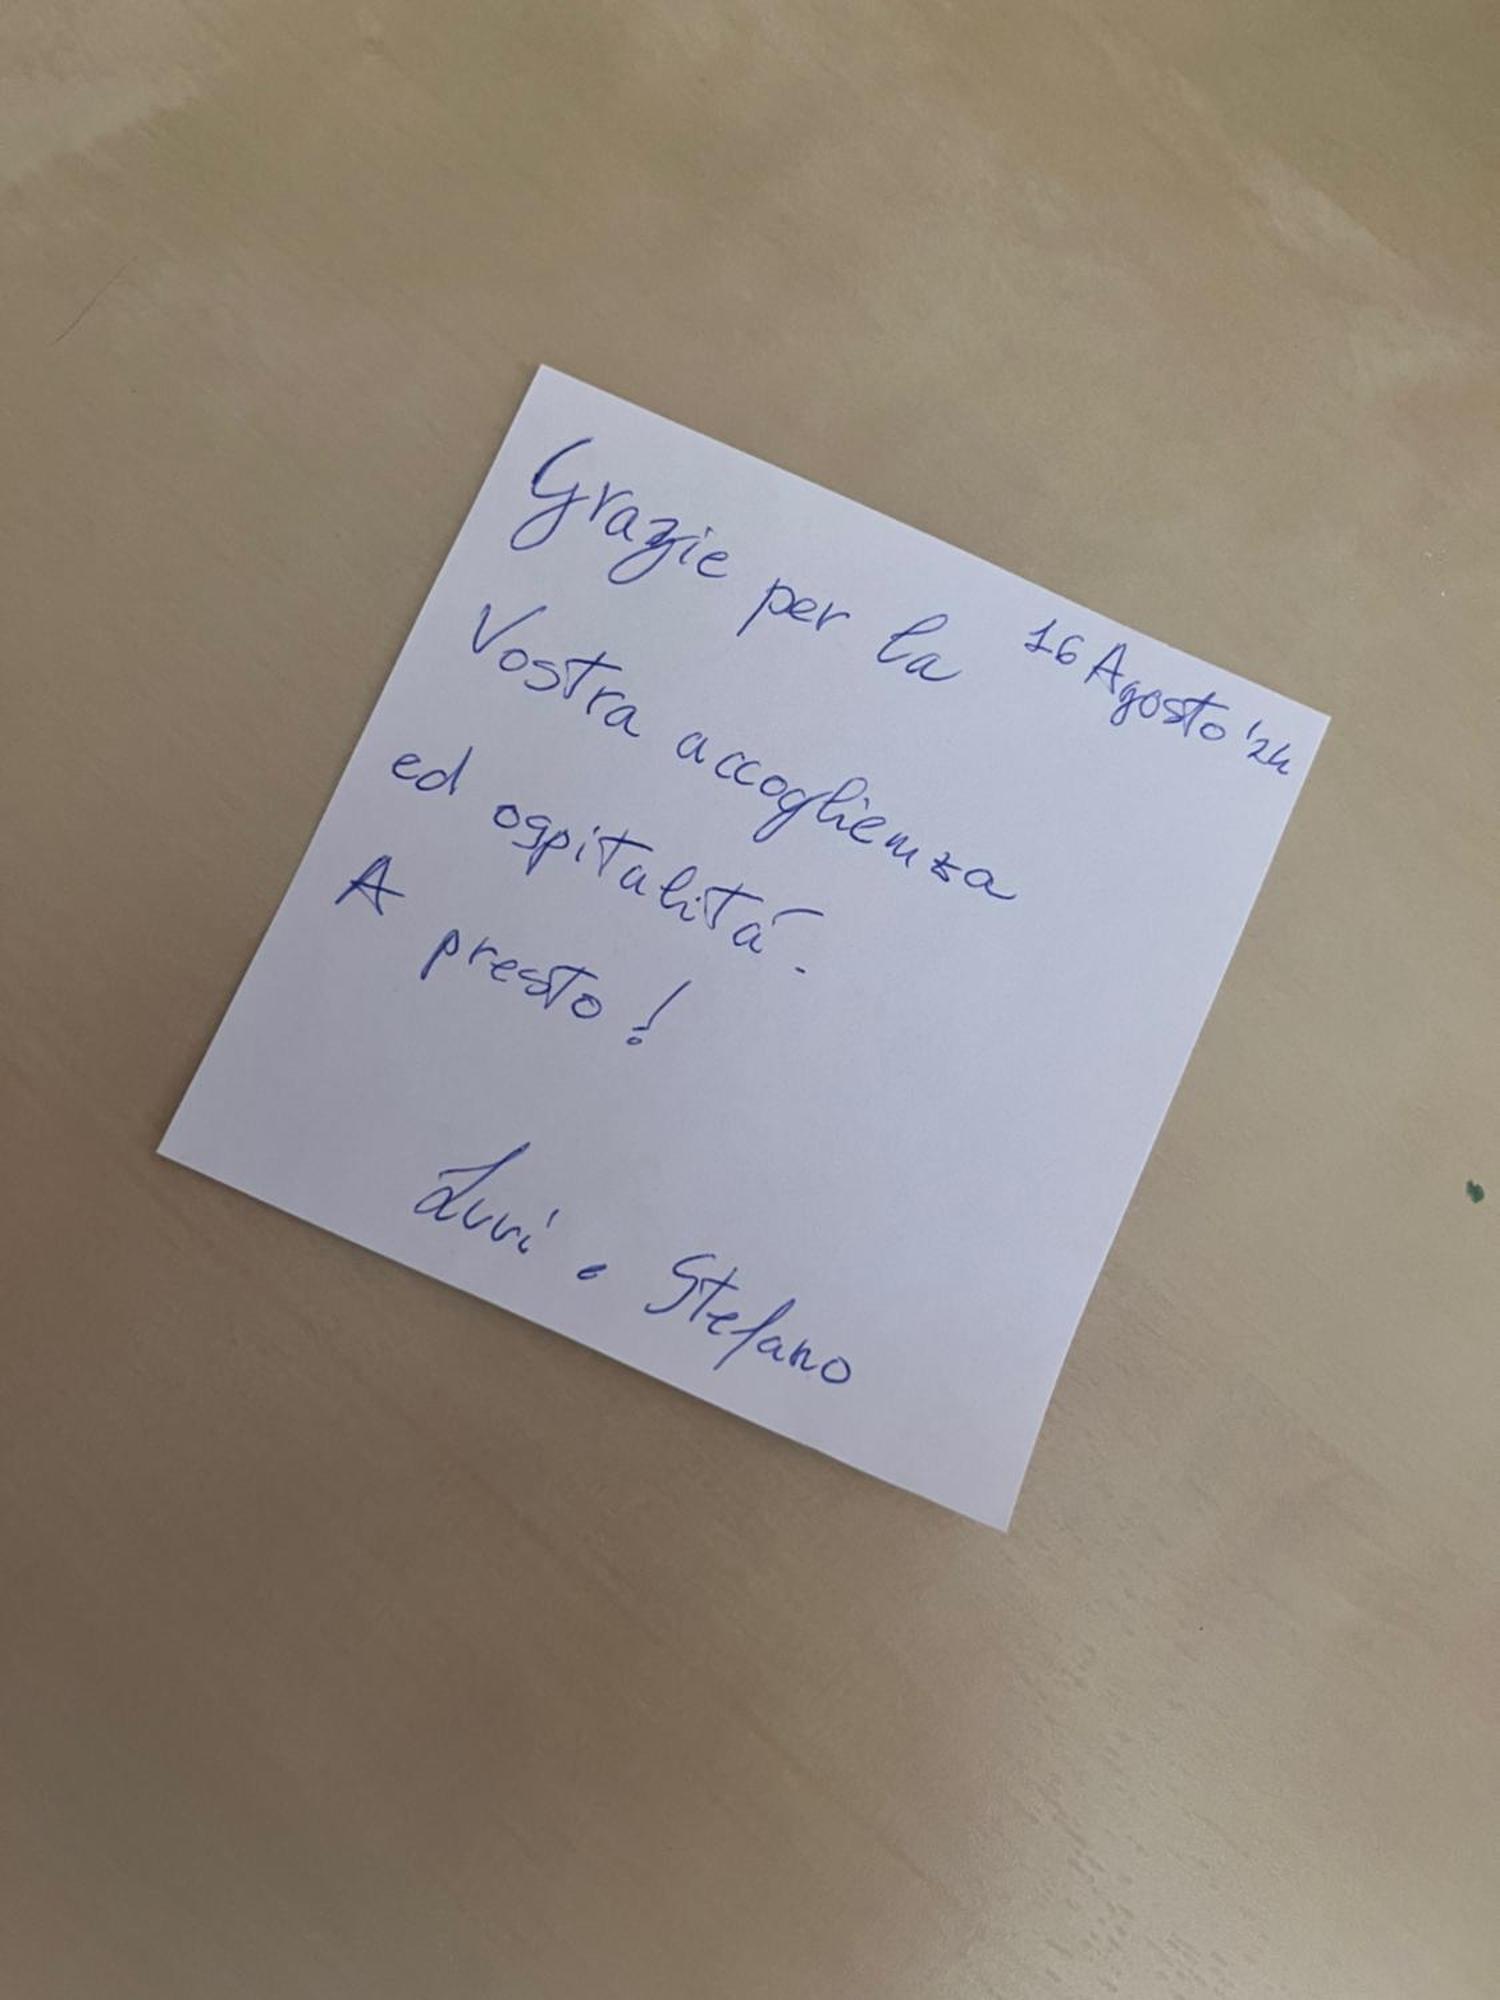 16 Agosto '24
Grazie per la
Vostra accoglienza
ed ospitalità.
A presto!
e Stefano